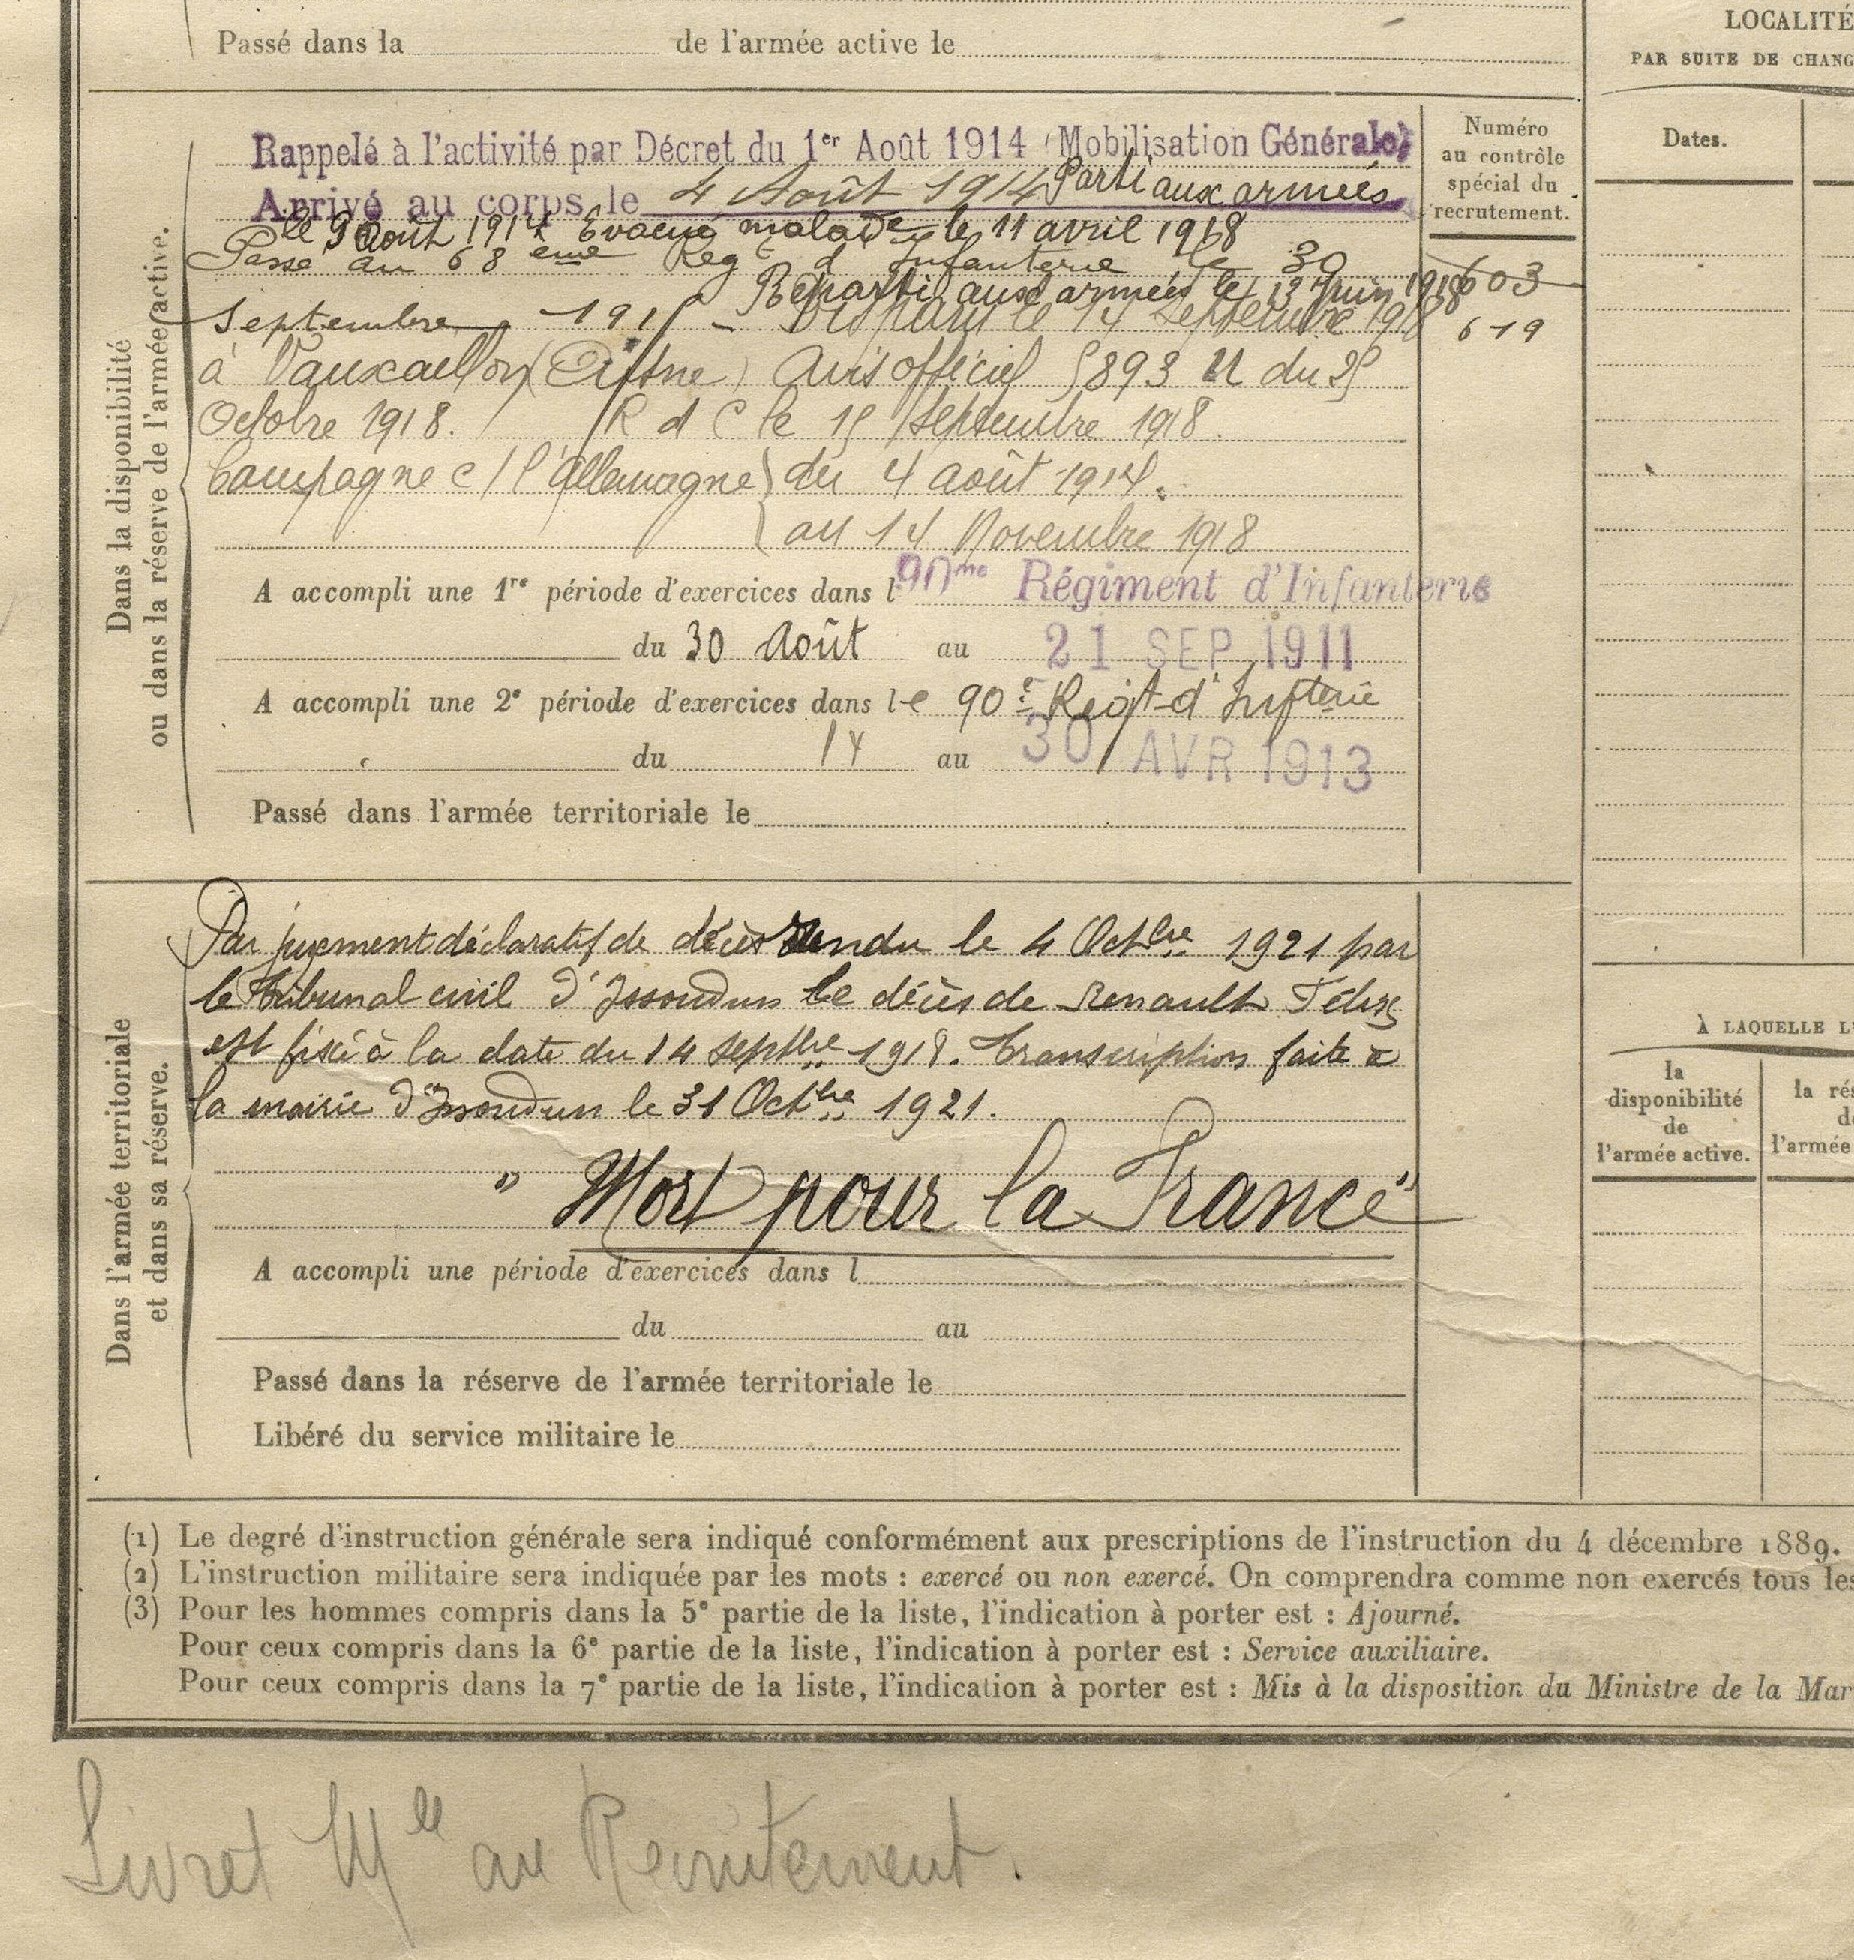 Passé dans la de l'armée active le
LOCALITÉ
PAR SUITE DE CHANG
Dates.
Numéro
au contrôle
spécial du
recrutement.
603
619
Dans la disponibilité
ou dans la réserve de l'armée active.
Rappelé à l'activité par Décret du 1er Août 1914 (Mobilisation Générale)
Arrivé au corps le 4 Août 1914 Parti aux armées
le 9 Août 1914 Evacué malade le 11 avril 1918
Passé au 68 ème Reg d'Infanterie le 30
Reparti aux armées le 12 Juin 1918
Septembre 191 - Disparu le 14 Septembre 1918
à Vauxaillon (Aisne) Avis officiel 5893 U du 25
Octobre 1918. R d C le 15 Septembre 1918.
Campagne c/ l'Allemagne } du 4 août 1914.
au 14 Novembre 1918
A accompli une 1re période d'exercices dans l 90me Régiment d'Infanterie
du 30 Août au 21 SEP 1911
A accompli une 2e période d'exercices dans le 90e Regt d'Infterie
du 14 au 30 AVR 1913
Passé dans l'armée territoriale le
Dans l'armée territoriale
et dans sa réserve.
Par jugement déclaratif de décès rendu le 4 Octbre 1921 par
le Tribunal civil d'Issoudun le décès de Renault Félix
est fixé à la date du 14 Septbre 1918. Transcription faite à
la mairie d'Issoudun le 31 Octbre 1921.
" Mort pour la France "
A accompli une période d'exercices dans l
du au
Passé dans la réserve de l'armée territoriale le
Libéré du service militaire le
À LAQUELLE L'
la
disponibilité
de
l'armée active.
la rés
de
l'armée
(1) Le degré d'instruction générale sera indiqué conformément aux prescriptions de l'instruction du 4 décembre 1889.
(2) L'instruction militaire sera indiquée par les mots : exercé ou non exercé. On comprendra comme non exercés tous les
(3) Pour les hommes compris dans la 5e partie de la liste, l'indication à porter est : Ajourné.
Pour ceux compris dans la 6e partie de la liste, l'indication à porter est : Service auxiliaire.
Pour ceux compris dans la 7e partie de la liste, l'indication à porter est : Mis à la disposition du Ministre de la Mar
Livret Mle au Recrutement.